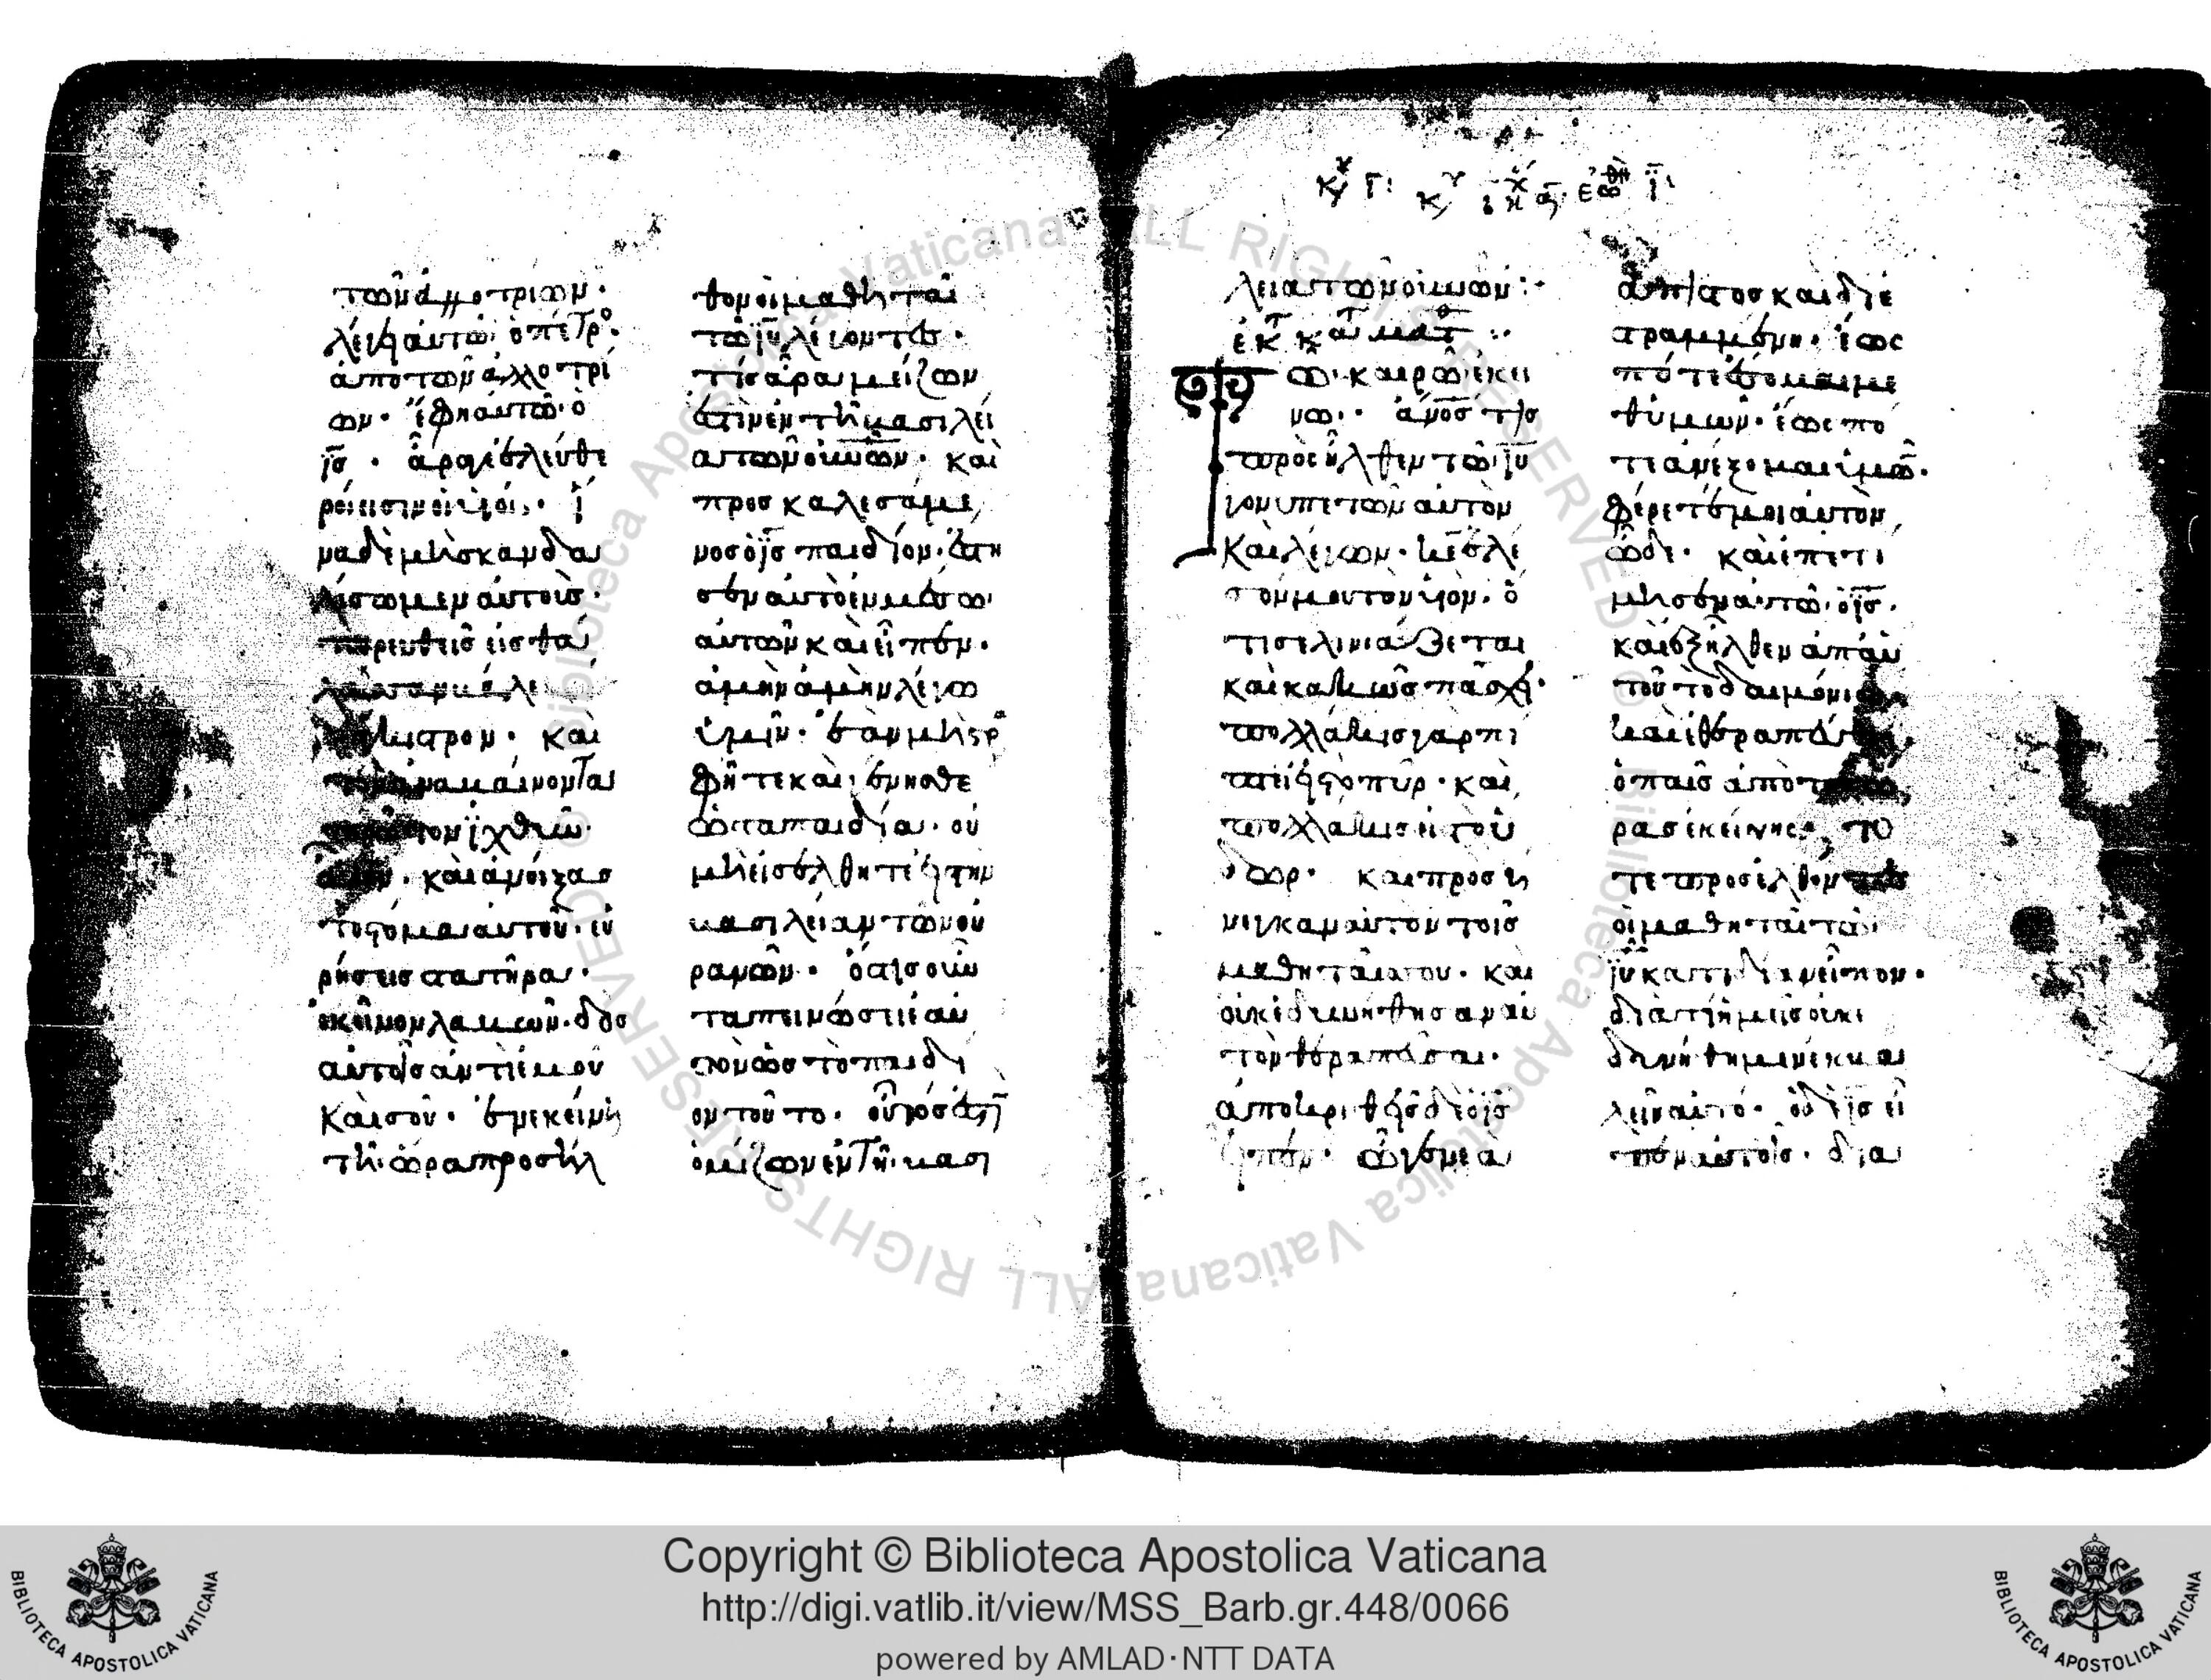 τῶν ἀλλοτρίων·
λέγει αὐτῶ ὁ πέτρο·
ἀπὸ τῶν ἀλλοτρί
ων· ἔφη αὐτῶ ὁ
ις · ἄραγε ἐλεύθε
ροί εισιν οἱ υἱοί· ἵ
να δὲ μὴ σκανδα
λίσωμεν αὐτοὺς·
πορευθεὶς εἰς θα
λασσαν βάλε
ἄγκιστρον· καὶ
τὸν ἀναβαίνοντα
πρῶτον ϊχθῦν
ἆρον· καὶ ἀνοίξας
τὸ στόμα αὐτοῦ· εὑ
ρήσεις στατῆρα·
ἐκεῖνον λαβὼν· δὸς
αὐτοῖς ἀντὶ ἐμοῦ
καὶ σοῦ· ἐν ἐκείνη
τῆ ὥρα προσῆλ
θον οἱ μαθηταὶ
τῶ ιυ λέγοντες·
τίς ἄρα μείζων
ἐστὶν ἐν τῆ βασιλεί
α τῶν οὐνῶν· καὶ
προσκαλεσάμε
νος ὁ ις παιδίον· ἔστη
σεν αὐτὸ ἐν μέσω
αὐτῶν καὶ εἶπεν·
ἀμὴν ἀμὴν λέγω
ὑμῖν· ἐὰν μὴ στρα
φῆτε καὶ γένησθε
ὡς τὰ παιδία· οὐ
μὴ εἰσέλθητε εἰς τὴν
βασιλείαν τῶν οὐ
ρανῶν· ὅστις οὖν
ταπεινώσει ἑαυ
τὸν ὡς τὸ παιδί
ον τοῦτο· οὗτός ἐστιν
ὁ μείζων ἐν τῆ βασι
Κυ Γ: Κυ ι α εωθ ι
λεία τῶν οὐνῶν:·
ἐκ τ κατ ματθ :·
Τω καιρῶ ἐκεί
νω· ἀνος τις
προσῆλθεν τῶ ιυ
γονυπετῶν αὐτὸν
Καὶ λέγων· κε ἐλέ
ησόν μου τὸν υἱὸν· ὅ
τι σεληνιάζεται
καὶ κακῶς πάσχει·
πολλάκις γὰρ πί
πτει εἰς τὸ πῦρ· καὶ
πολλάκις εἰς τὸ ὕ
δωρ· καὶ προσή
νεγκα αὐτὸν τοῖς
μαθηταῖς σου· καὶ
οὐκ ἐδυνήθησαν αὐ
τὸν θεραπεῦσαι·
ἀποκριθεὶς δὲ ὁ ις
εἶπεν· ὦ γενεὰ
ἄπιστος καὶ διε
στραμμένη· ἕως
πότε ἔσομαι με
θ ὑμῶν· ἕως πό
τε ἀνέξομαι ὑμῶν·
φέρετέ μοι αὐτὸν
ὧδε· καὶ ἐπετί
μησεν αὐτῶ ὁ ις·
καὶ ἐξῆλθεν ἀπ αὐ
τοῦ τὸ δαιμόνιον
καὶ ἐθεραπεύθη
ὁ παῖς ἀπὸ τῆς ὥ
ρας ἐκείνης· το
τε προσελθόντες
οἱ μαθηταὶ τῶ
ιυ κατ ιδίαν εἶπον·
διατί ἡμεῖς οὐκ ἐ
δυνήθημεν ἐκβα
λεῖν αὐτό· ὁ δὲ ις εἶ
πεν αὐτοῖς· δια
Copyright © Biblioteca Apostolica Vaticana
http://digi.vatlib.it/view/MSS_Barb.gr.448/0066
powered by AMLAD·NTT DATA
BIBLIOTECA APOSTOLICA VATICANA
BIBLIOTECA APOSTOLICA VATICANA